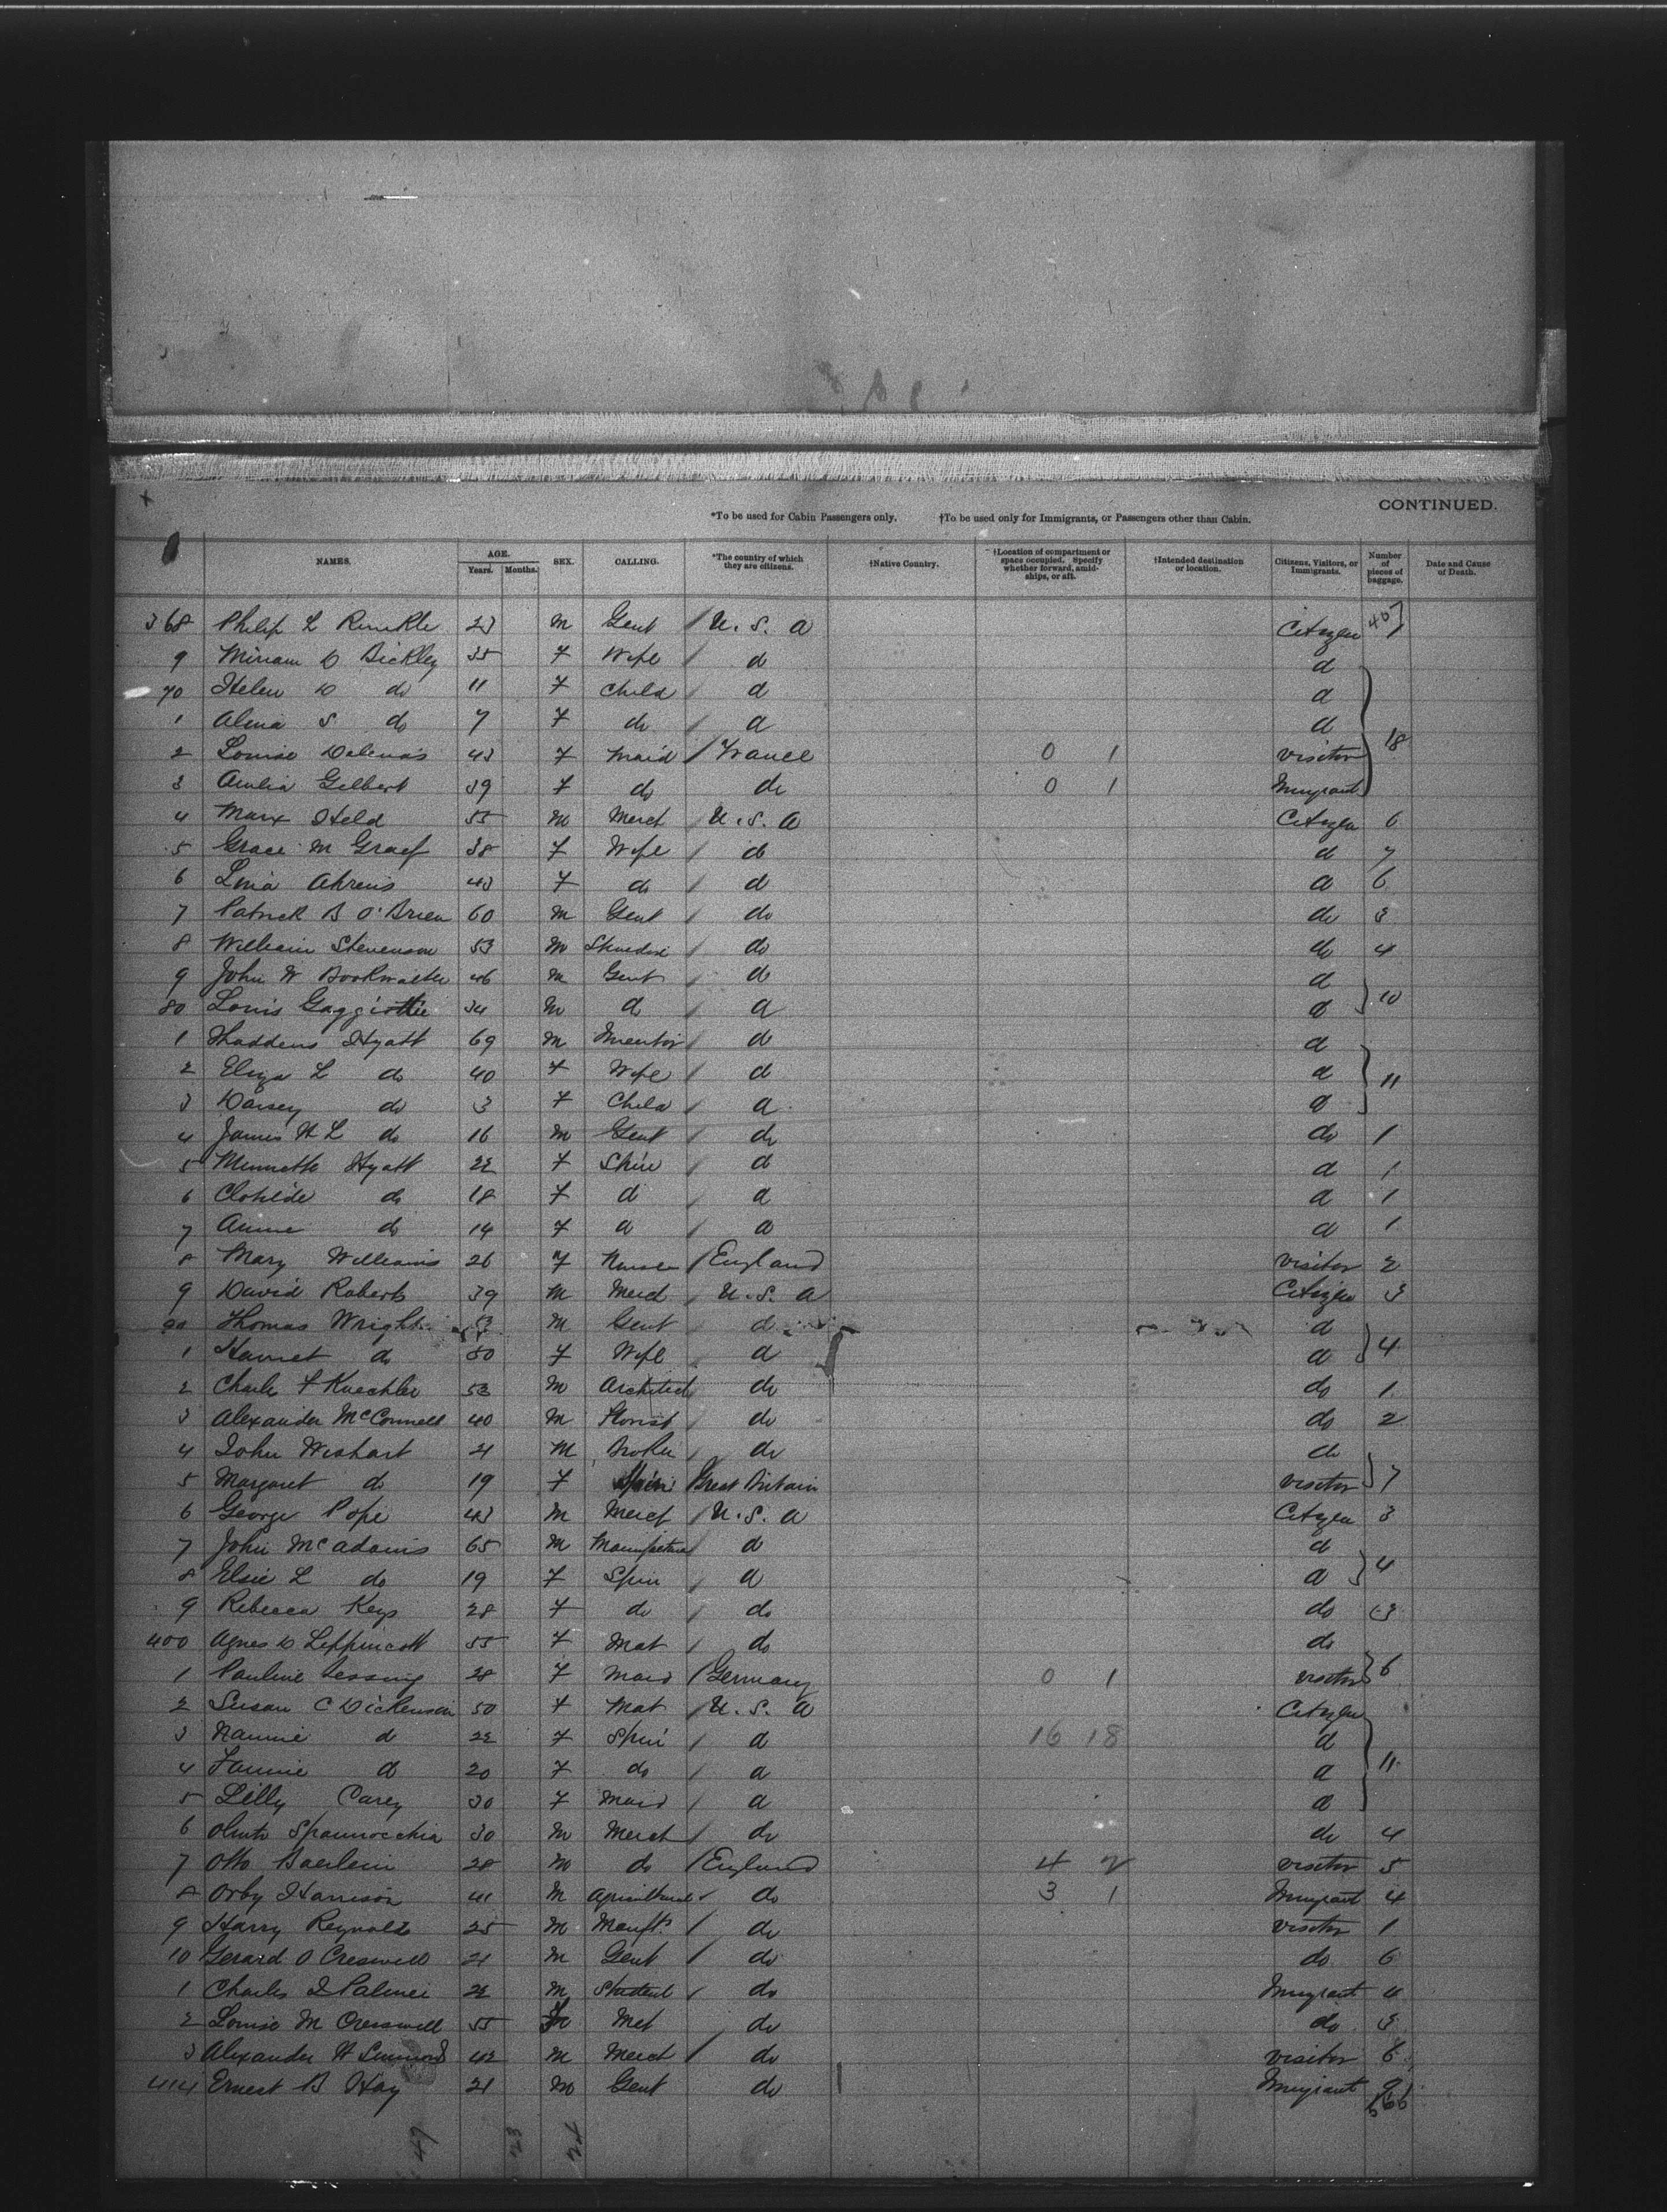 CONTINUED.
*To be used for Cabin Passengers only. †To be used only for Immigrants, or Passengers other than Cabin.
NAMES. AGE. Years. Months. SEX. CALLING. *The country of which they are citizens. †Native Country. †Location of compartment or space occupied. Specify whether forward, amidships, or aft. †Intended destination or location. Citizens, Visitors, or Immigrants. Number of pieces of baggage. Date and Cause of Death.
368 Philip L 23 M Gent U. S. A Citizen 407 1
9 Miriam D Bickley 35 F Wife d d
70 Helen D do 11 F Child d d
1 Alma S do 7 F do d d
2 Louise 43 F Maid France 0 1 Visitor 18
3 Gilbert 39 F do do 0 1 Imigrant
4 Marx Held 55 M Merct U. S. A Citizen 6
5 Grace M Graef 38 F Wife do d 7
6 Lina Ahrens 43 F do d d 6
7 Patrick B O'Brien 60 M Gent do do 3
8 William Stevenson 53 M do do 4
9 John W Bookwalter 46 M Gent do d
80 Louis 34 M d d d 10
1 Thaddeus Hyatt 69 M Inventor d d
2 Eliza L do 40 F Wife d d 11
3 Daisey do 3 F Child d d
4 James H L do 16 M Gent do do 1
5 Hyatt 22 F Spin d d 1
6 Clotilde do 18 F d d d 1
7 Annie do 14 F d d d 1
8 Mary Williams 26 F Nurse England Visitor 2
9 David Roberts 39 M Merct U. S. A Citizen 3
90 Thomas Wright 53 M Gent d d
1 Harriet do 50 F Wife d d 4
2 Charles F Kuechler 53 M Architect do do 1
3 Alexander McConnell 40 M Florist do do 2
4 John Wishart 21 M Broker do do
5 Margaret do 19 F Spin Great Britain Visitor 7
6 George Pope 43 M Merct U. S. A Citizen 3
7 John McAdams 65 M Manufacturer d d
8 Elsie L do 19 F Spin d d 4
9 Rebecca Keys 28 F do do do 3
400 Agnes D Lippincott 55 F Mat do do
1 Pauline Lessing 28 F Maid Germany 0 1 Visitor 6
2 Susan C Dickenson 50 F Mat U. S. A Citizen
3 Nannie d 22 F Spin d 16 18 d
4 Fannie d 20 F do d d 11
5 Lilly Carey 30 F Maid d d
6 Spannocchia 30 M Merct do do 4
7 Otto Baerlein 28 M do England 4 2 Visitor 5
8 Orby Harrison 41 M do 3 1 Imigrant 4
9 Harry Reynolds 25 M Manftr do Visitor 1
10 Gerard O Creswell 21 M Gent do do 6
1 Charles I Palmer 22 M Student do Imigrant 4
2 Louise M Cresswell 55 F Mat do do 3
3 Alexander H 42 M Merct do Visitor 6
414 Ernest B Hay 21 M Gent do Imigrant 9
566